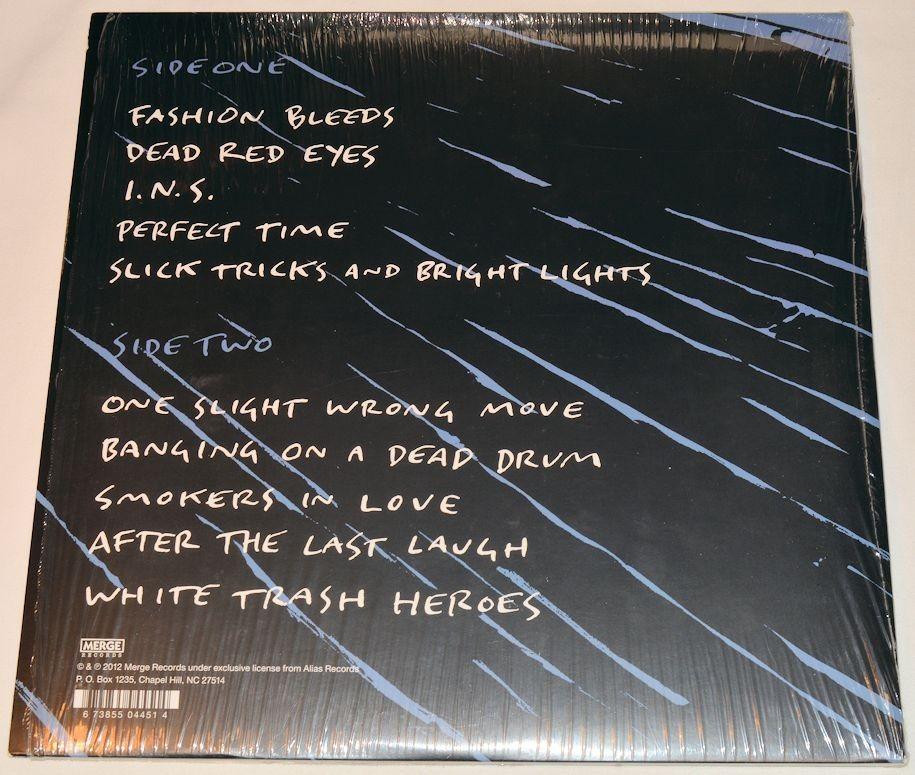 SIDE ONE
FASHION BLEEDS
DEAD RED EYES
I.N.S.
PERFECT TIME
SLICK TRICKS AND BRIGHT LIGHTS
SIDE TWO
ONE SLIGHT WRONG MOVE
BANGING ON A DEAD DRUM
SMOKERS IN LOVE
AFTER THE LAST LAUGH
WHITE TRASH HEROES
MERGE
RECORDS
© & ℗ 2012 Merge Records under exclusive license from Alias Records
P. O. Box 1235, Chapel Hill, NC 27514
6 73855 04451 4